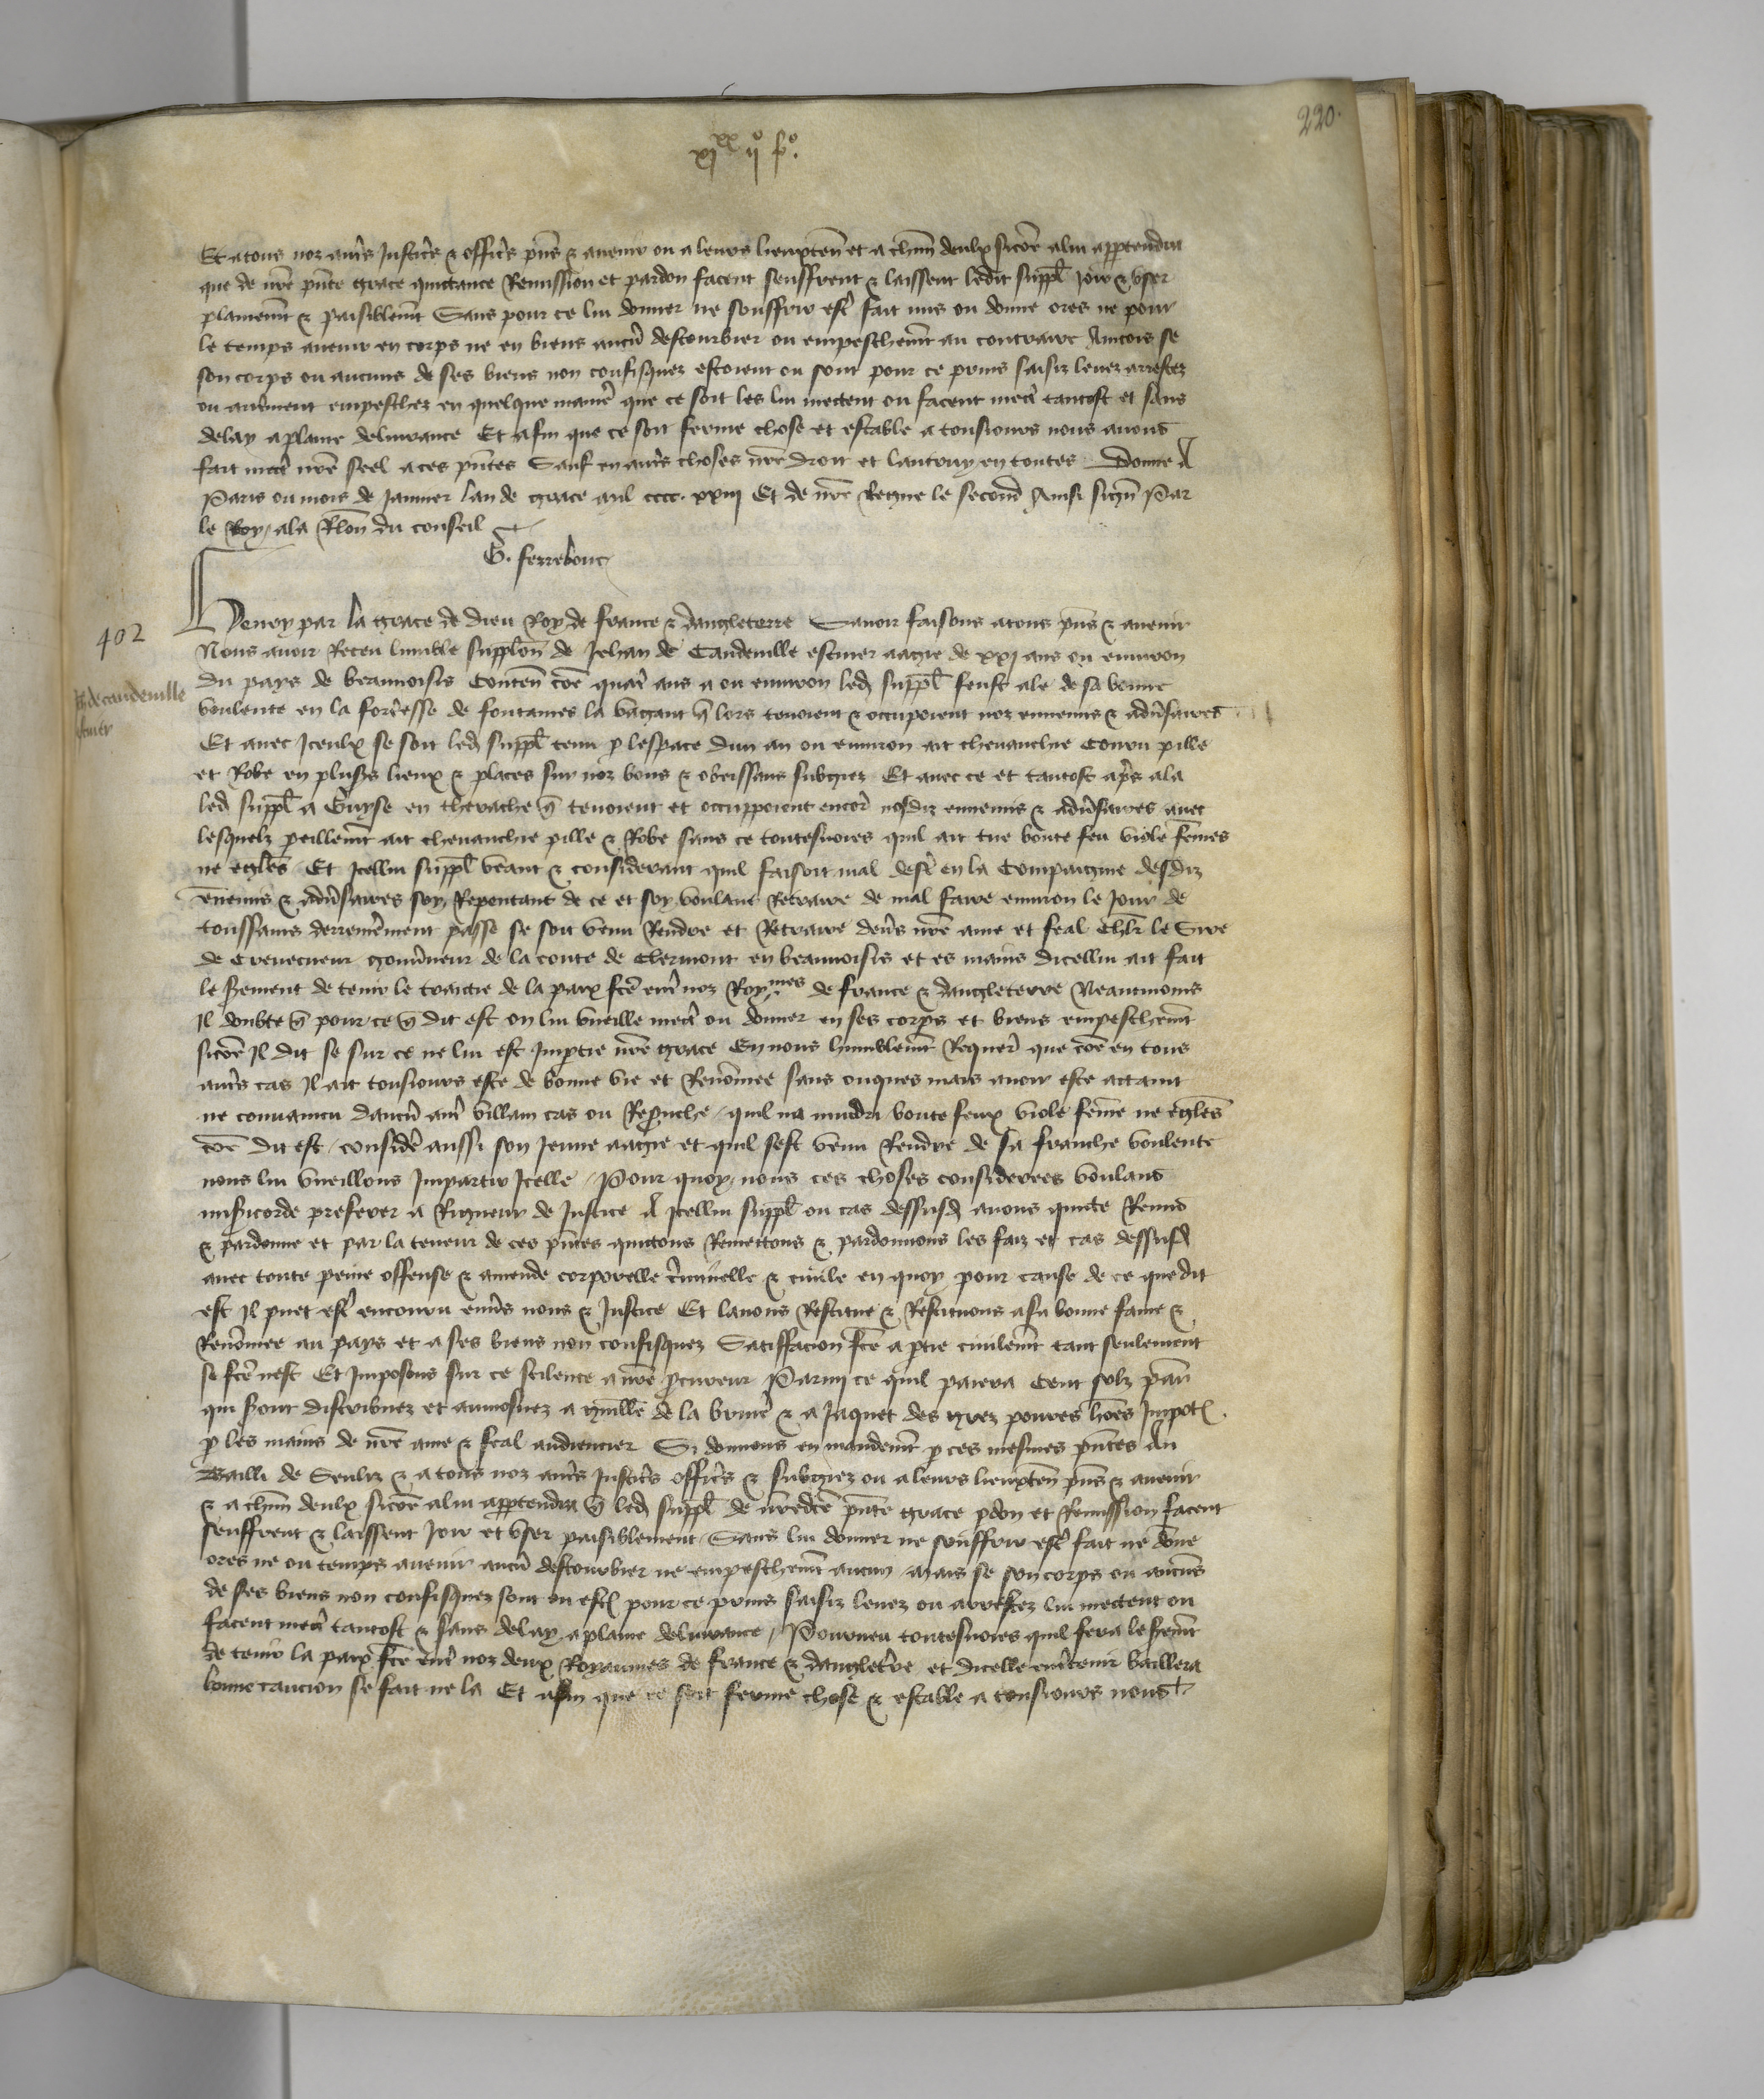 220.
xjxx ijo fo.
Et a tous noz aut̃s Justic̃s & offic̃s p̃ns & avenir ou a leurs lieuxten̄ et a ch̃un deulx sicõe a lui app̱tendra
que de nr̃e p̃nte grace quictance Remission et pardon facent seuffrent & laissent ledit suppl̃ Joir & user
plainem̃t & paisiblem̃t Sans pour ce lui donner ne souffrir est̃ fait mis ou donne ores ne pour
le temps avenir en corps ne en biens aucũ destourbier ou empeschem̃t au contraire Aincois se
son corps ou aucuns de ses biens non confisquez estoient ou sont pour ce prins saisiz levez arrestez
ou aut̃ment empeschez en quelque manie᷑ que ce soit les lui mectent ou facent mect̃ tantost et sans
delay a plaine delivrance Et afin que ce soit ferme chose et estable a tousiours nous avons
fait mect̃ nr̃e seel a ces p̃ntes Sauf en aut̃s choses nr̃e droit et lautruy en toutes Donne A
Paris ou mois de Janvier lan de grace mil cccc. xxiij Et de nr̃e Regne le second Ainsi sign̄ Par
le Roy / a la Rl̃on du conseil
G. ferrebouc
402
Henry par la grace de dieu Roy de france & dangleterre Savoir faisons a tous p̃ns & avenir
Nous avoir Receu lumble suppl̃on de Jehan de Candeville escuier aagie de xxj ans ou environ
J. de candeville
escuier
du pays de beauvoisis Conten̄ cõe quat̃ ans a ou environ led̃ suppl̃ feust ale de sa bonne
voulente en la fort̃esse de fontaines la vagant q̃ lors tenoient & occupoient noz ennemis & adṽsaires
Et avec Iceulx se soit led̃ suppl̃ tenu p̱ lespace dun an ou environ ait chevauchie Couru pille
et Robe en plus̃s lieux & places sur noz bons & obeissans subgiez Et avec ce et tantost ap̃s ala
led̃ suppl̃ a Guyse en therache q̃ tenoient et occuppoient encor̃ nosdiz ennemis & adṽsaires avec
lesquelz p̱eillem̃t ait chevauchie pille & Robe sans ce toutesvoies quil ait tue boute feu viole fẽmes
ne egl̃es Et Icellui suppl̃ veant & considerant quil faisoit mal dest̃ en la Compaignie desdiz
ẽnemis & adṽsaires soy Repentant de ce et soy voulant Retraire de mal faire environ le Jour de
toussains derrenierement passe se soit venu Rendre et Retraire deṽs nr̃e ame et feal chl̃r le Sire
de Crevecueur gouṽneur de la conte de Clermont en beauvoisis et es mains dicellui ait fait
le s̃ement de tenir le traictie de la paix fc̃e ent̃ noz Roymes de france & dangleterre Neantmoins
Il doubte q̃ pour ce q̃ dit est on lui vueille mect̃ ou donner en ses corps et biens empeschem̃t
sicõe Il dit se sur ce ne lui est Imp̱tie nr̃e grace En nous humblem̃t Requer̃ que cõe en tous
aut̃s cas Il ait tousiours este de bonne vie et Renõmee sans onques mais avoir este actaint
ne convaincu daucũ aut̃ villain cas ou Rep̱uche / quil na murdri boute feux viole fẽme ne egl̃es
cõe dit est / consider̃ aussi son Jeune aagie et quil sest venu Rendre de sa franche voulente
nous lui vueillons Impartir Icelle / Pour quoy / nous ces choses considerees voulans
mis̃icorde preferer a Rigueur de Justice A Icellui suppl̃ ou cas dessusd̃ avons quicte Remis
& pardonne et par la teneur de ces p̃ntes quictons Remettons & pardonnons les faiz et cas dessusd̃
avec toute peine offense & amende corporelle c̃minelle & civile en quoy pour cause de ce que dit
est Il puet est̃ encouru env̄s nous & Justice Et lavons Restitue & Restituons a sa bonne fame &
Renõmee au pays et a ses biens non confisquez Satiffacion fc̃e a p̱tie civilem̃t tant seulement
se fc̃e nest Et Imposons sur ce scilence a nr̃e p̱cureur Parmy ce quil paiera Cent solz par̃
qui s̃ont distribuez et aumosnez a guill̃e de la bruie᷑ & a Jaquet des grez povres hões Impot̃
p̱ les mains de nr̃e ame & feal audiencier Si donnons en mandem̃t p̱ ces mesmes p̃ntes Au
Bailli de Senliz & a tous noz aut̃s Justic̃s offic̃s & subgiez ou a leurs lieuxten̄ p̃ns & avenir
& a ch̃un deulx sicõe a lui app̱tendra q̃ led̃ suppl̃ de nr̃edc̃e p̃nte grace p̱don et Remission facent
seuffrent & laissent Joir et user paisiblement / Sans lui donner ne souffrir est̃ fait ne dõne
ores ne ou temps avenir aucũ destourbier ne empeschem̃t aucun / Mais se son corps ou aucũs
de ses biens non confisquez sont ou est̃ pour ce prins saisiz levez ou arrestez lui mectent ou
facent mect̃ tantost & sans delay a plaine delivrance / Pourveu toutesvoies quil fera le s̃em̃t
de tenir la paix fc̃e ent̃ noz deux Royaumes de france & danglet̃re et dicelle ent̃tenir baillera
bonne caucion se fait ne la Et afin que ce soit ferme chose & estable a tousiours nous